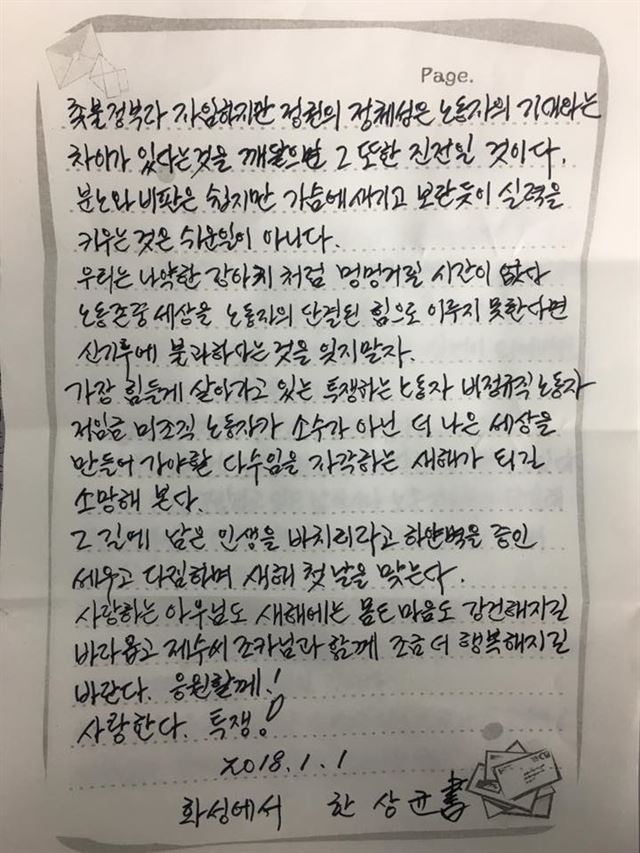 Page.
촛불정부라 자임하지만 정권의 정체성은 노동자의 기대와는
차이가 있다는것을 깨달으면 그 또한 진전일 것이다.
분노와 비판은 쉽지만 가슴에 새기고 보란듯이 실력을
키우는 것은 쉬운일이 아니다.
우리는 나약한 강아지 처럼 멍멍거릴 시간이 없다
노동존중 세상을 노동자의 단결된 힘으로 이루지 못한다면
신기루에 불과하다는 것을 잊지말자.
가장 힘들게 살아가고 있는 투쟁하는 노동자 비정규직 노동자
저임금 미조직 노동자가 소수가 아닌 더 나은 세상을
만들어 가야할 다수임을 자각하는 새해가 되길
소망해 본다.
그 길에 남은 인생을 바치리라고 하얀벽을 증인
세우고 다짐하며 새해 첫 날을 맞는다.
사랑하는 아우님도 새해에는 몸도 마음도 강건해지길
바라옵고 제수씨 조카님과 함께 조금 더 행복해지길
바란다. 응원할께!
사랑한다. 투쟁!
2018.1.1
화성에서 한상균 書